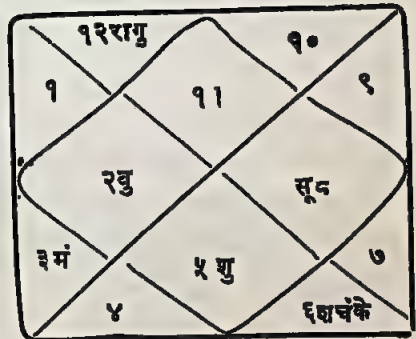 १२रागु
१०
१
११
९
२वु
सू८
३मं
५ शु
७
४
६शचंके